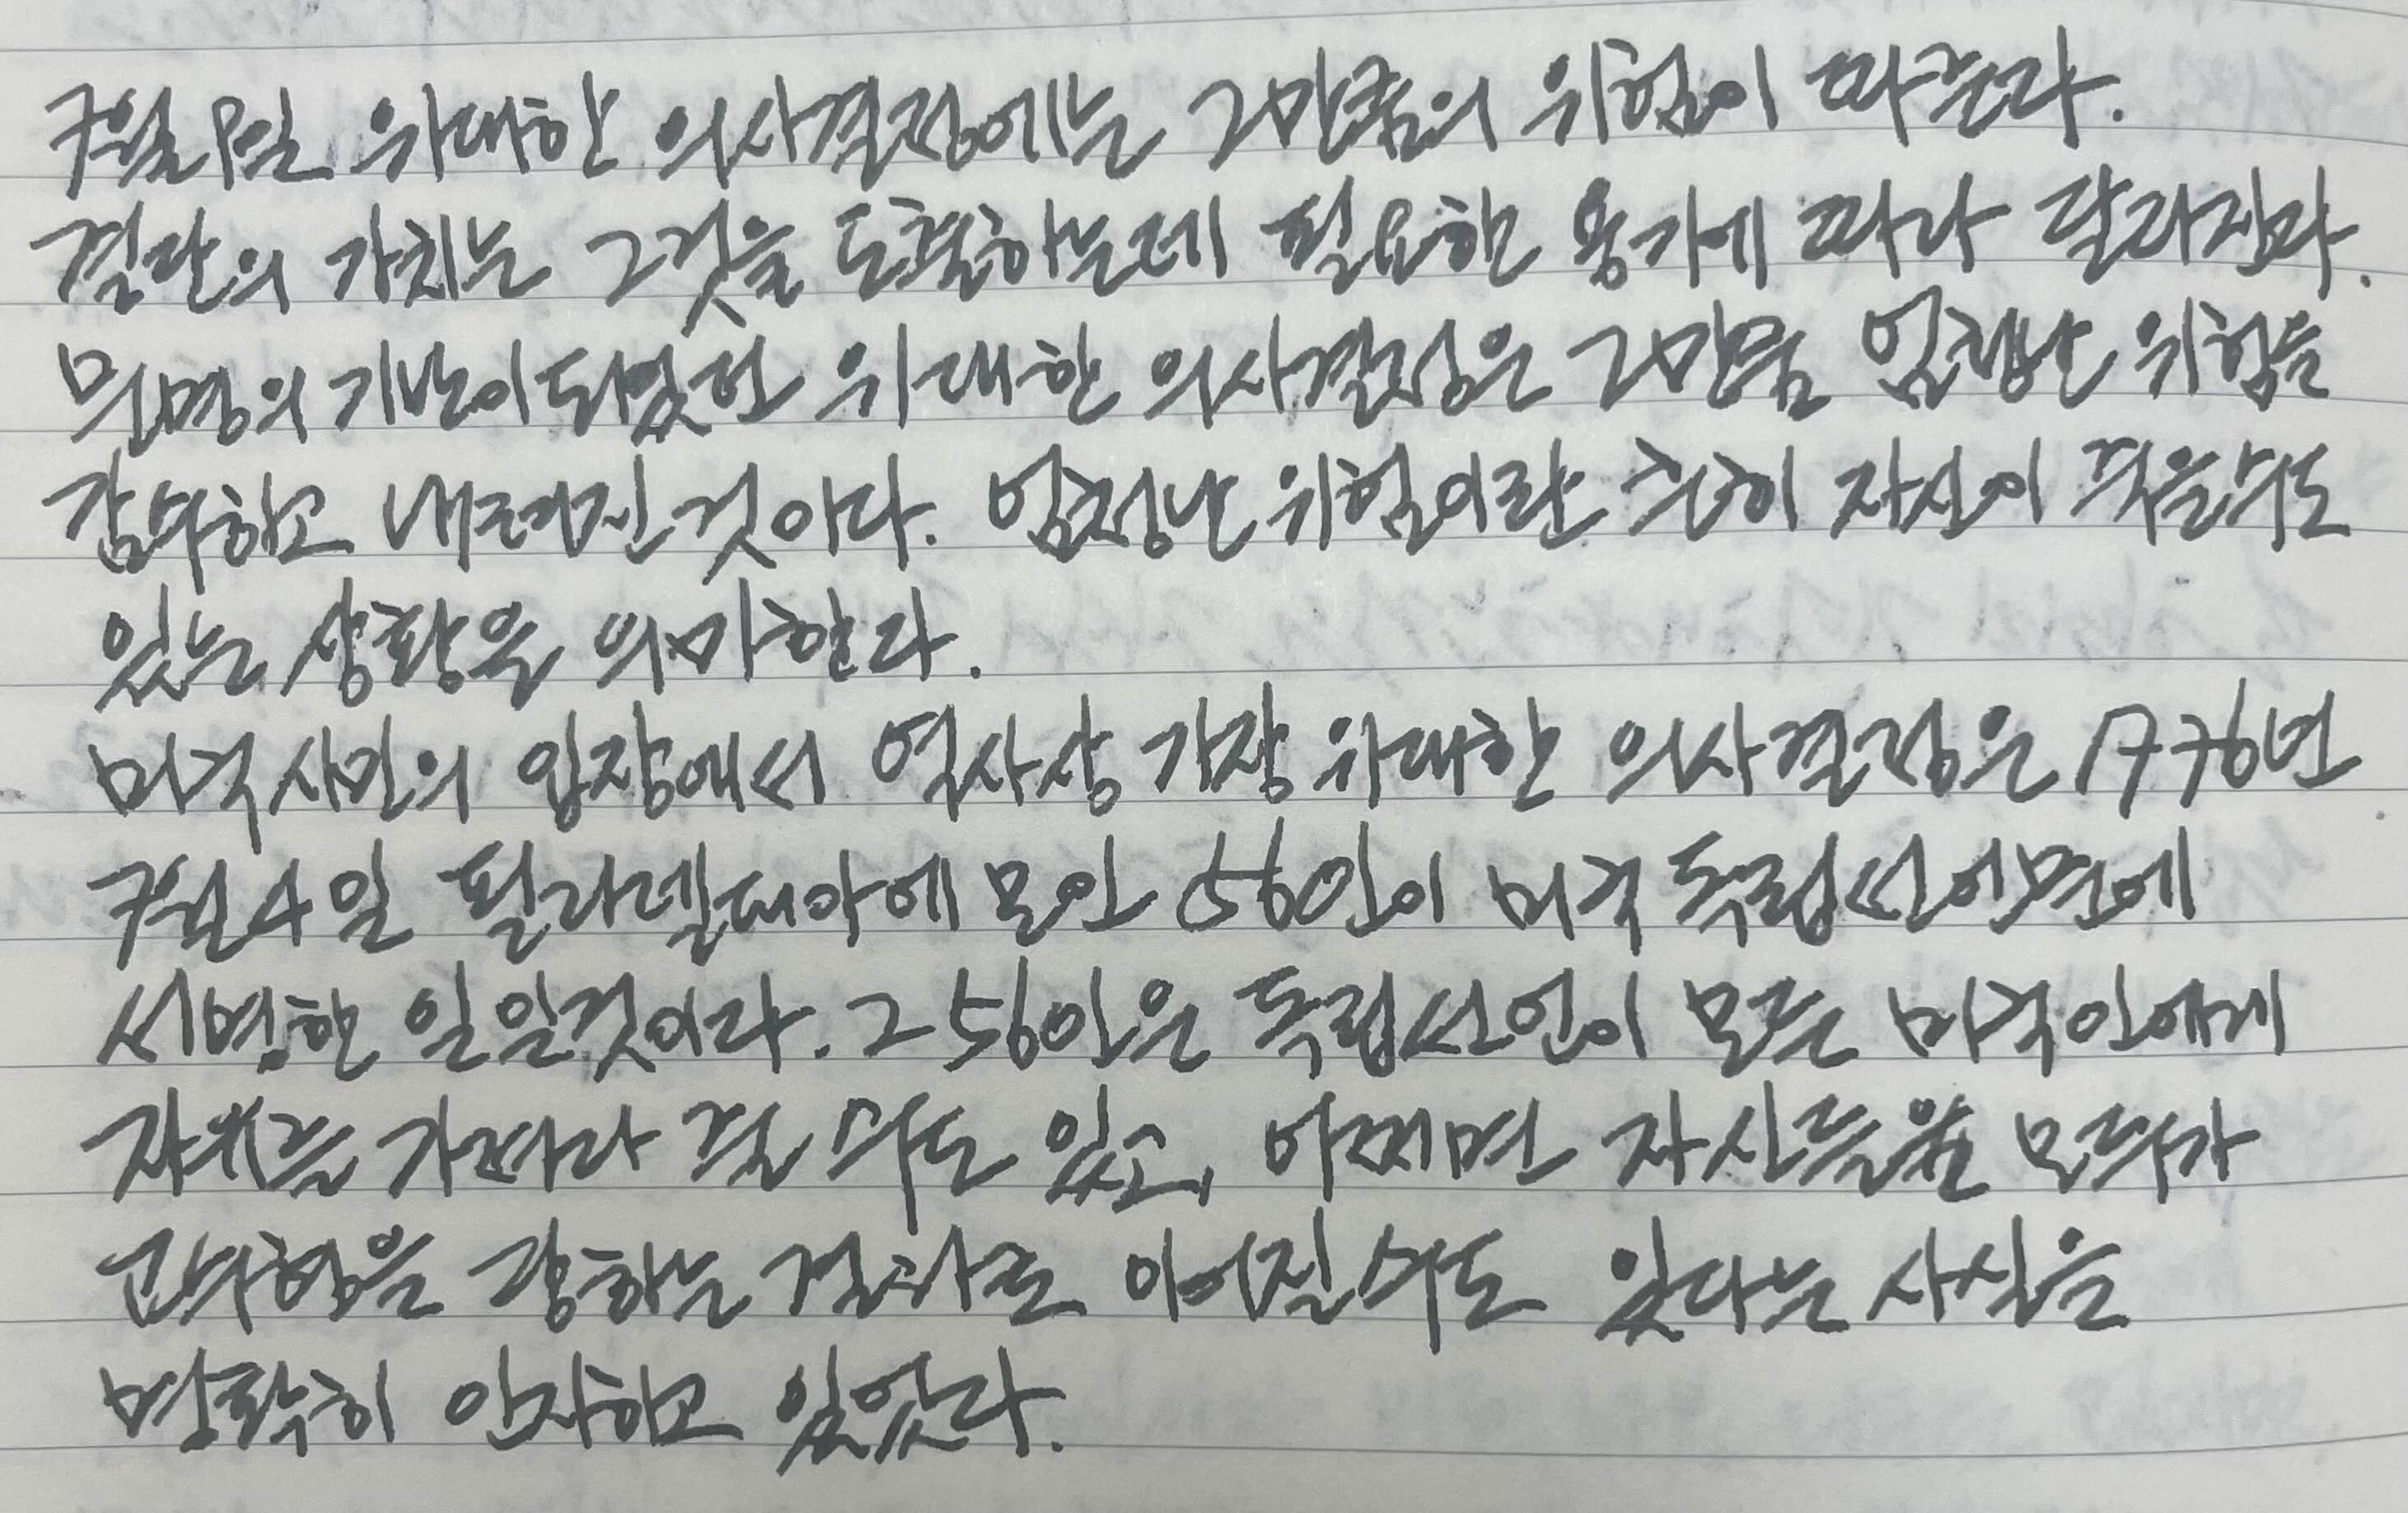 7월 8일 위대한 의사결정에는 그만큼의 위험이 따른다.
결단의 가치는 그것을 도출하는데 필요한 용기에 따라 달라진다.
문명의 기반이 되었던 위대한 의사결정은 그만큼 엄청난 위험을
감수하고 내려진 것이다. 엄청난 위험이란 흔히 자신이 죽을수도
있는 상황을 의미한다.
미국 시민의 입장에서 역사상 가장 위대한 의사결정은 1776년
7월 4일 필라델피아에 모인 56인이 미국 독립선언문에
서명한 일일것이다. 그 56인은 독립선언이 모든 미국인에게
자유를 가져다 줄 수도 있고, 어쩌면 자신들 모두가
교수형을 당하는 결과로 이어질 수도 있다는 사실을
명확히 인지하고 있었다.